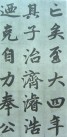 亡矣至大四年
其子治濟濟浩
迺克自力奉公